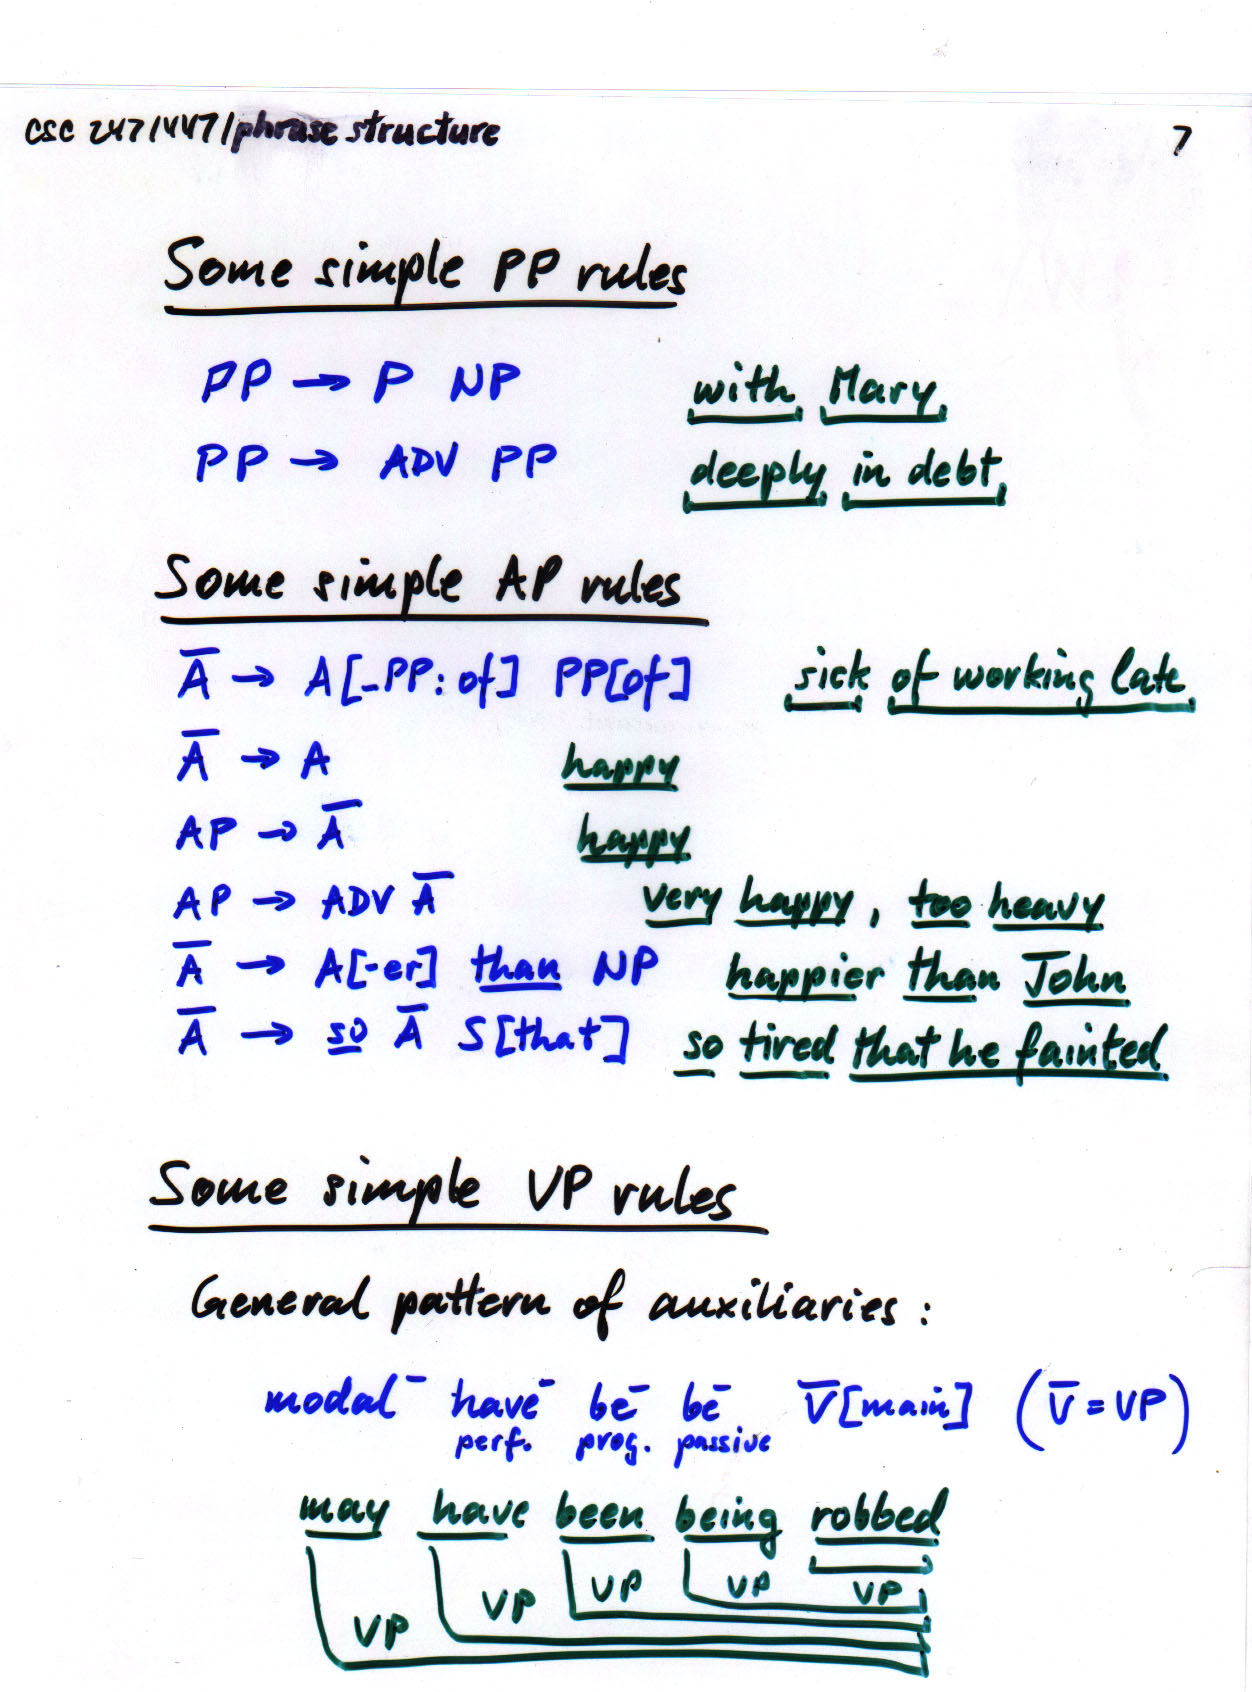 CSC 247/447/phrase structure 7
Some simple PP rules
PP → P NP with Mary
PP → ADV PP deeply in debt
Some simple AP rules
A̅ → A[_PP:of] PP[of] sick of working late
A̅ → A happy
AP → A̅ happy
AP → ADV A̅ very happy, too heavy
A̅ → A[-er] than NP happier than John
A̅ → so A̅ S[that] so tired that he fainted
Some simple VP rules
General pattern of auxiliaries:
modal⁻ have⁻ be⁻ be⁻ V̅[main] (V̅ = VP)
perf. prog. passive
may have been being robbed
VP VP VP VP VP